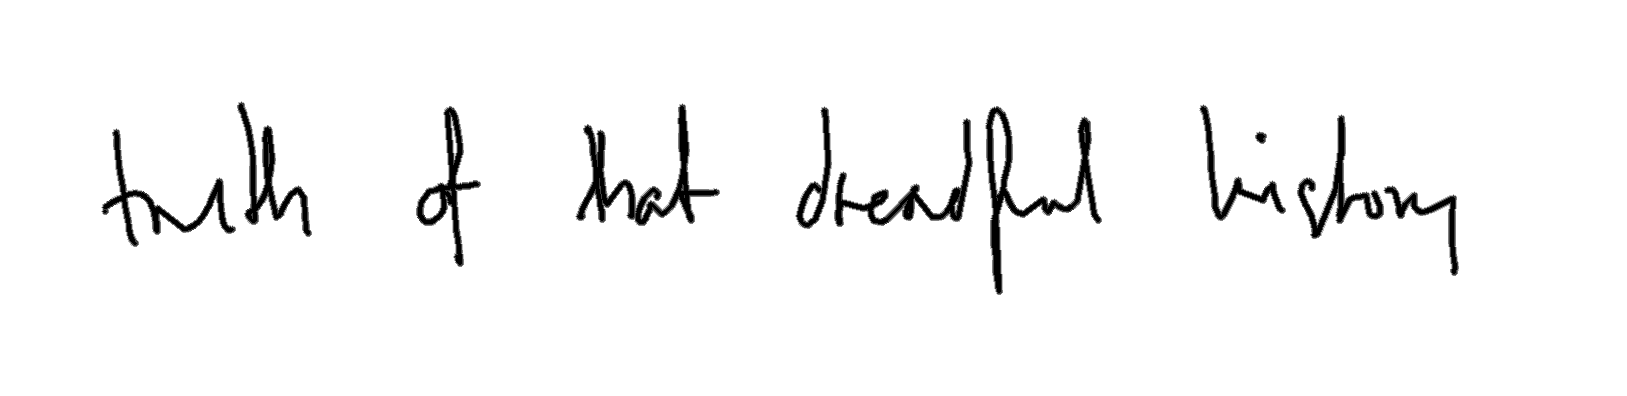 truth of that dreadful history